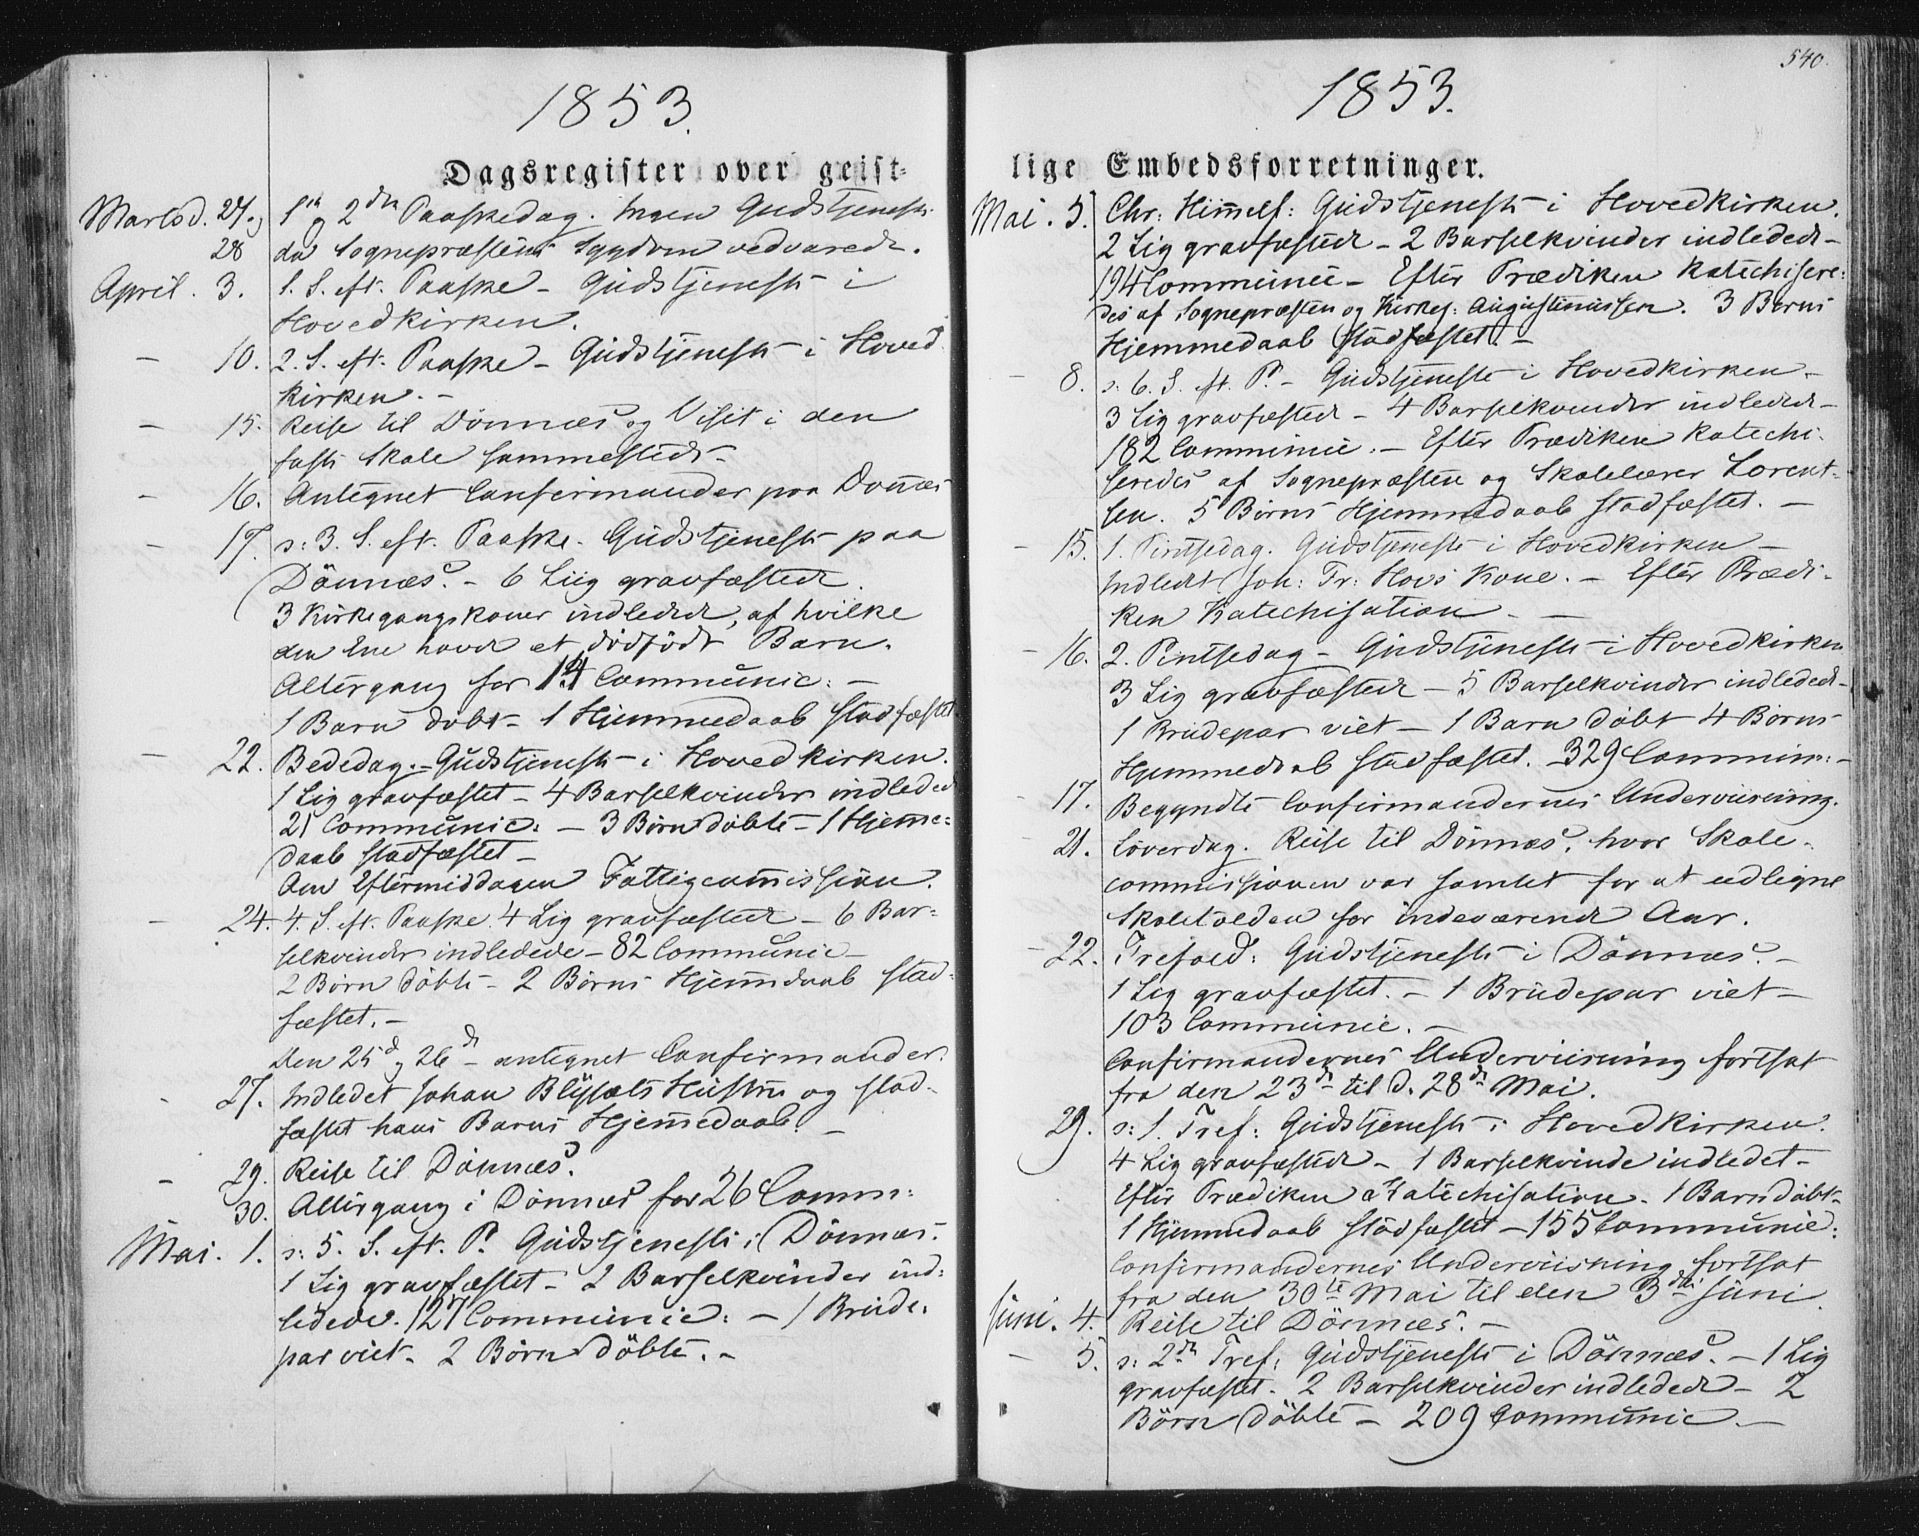 1853.
Dagsregister over geist-
Martsd. 27. og 1ste og 2den Paaskedag. Ingen Gudstjeneste
28 da Sognepræstens Sygdom vedvarede.
April. 3. 1. S. eft. Paaske - Gudstjeneste i
Hovedkirken.
- 10. 2. S. eft. Paaske - Gudstjeneste i Hoved
kirken. -
- 15. Reise til Dönnæs og Visit i den
faste Skole sammesteds -
- 16. Antegnet Confirmander paa Dönnæs
- 17. s: 3. S. eft. Paaske. Gudstjeneste paa
Dönnæs. - 6 Liig gravfæstede.
3 Kirkegangskoner indledede, af hvilke
den Ene havde et dödfödt Barn.
Altergang for 14 Communic: -
1 Barn döbt - 1 Hjemmedaab stadfæstet
- 22. Bededag. - Gudstjeneste i Hovedkirken.
1 Lig gravfæstet - 4 Barselkvinder indledede
21 Communic: - 3 Börn döbte - 1 Hjemme:
daab stadfæstet -
Om Eftermiddagen Fattigcommission.
- 24. 4. S. eft. Paaske. 4 Lig gravfæstede - 6 Bar:
selkvinder indledede - 82 Communic -
2 Börn döbte - 2 Börns Hjemmdaab stad:
fæstet. -
Den 25d og 26de antegnet Confirmander.
- 27. Indledet Johan Hustru og stad-
fæstet hans Barns Hjemmedaab. -
- 29. Reise til Dönnæs.
30. Altergang i Dönnæs for 26 Comm:
Mai. 1. s: 5. S. eft. P. Gudstjeneste i Dönnæs.
1 Lig gravfæstet - 2 Barselkvinder ind:
ledede. 127 Communic: - 1 Brude:
par viet - 2 Börn döbte. -
540.
1853.
lige Embedsforretninger.
Mai. 5. Chr: Himmelf: Gudstjeneste i Hovedkirken.
2 Lig gravfæstede - 2 Barselkvinder indledede -
194 Communic - Efter Prædiken Katechisere:
des af Sognepræsten og Kirkes: Augustinussen. 3 Börns
Hjemmedaab stadfæstet. -
- 8. s: 6. S. eft. P. - Gudstjeneste i Hovedkirken -
3 Lig gravfæstede - 4 Barselkvinder indledede -
182 Communic. - Efter Prædiken Katechi-
seredes af Sognepræsten og Skolelærer Lorent-
sen. 5 Börns Hjemmedaab stadfæstet. -
- 15. 1. Pintsedag. Gudstjeneste i Hovedkirken -
Indledt Joh: Fr: Hovs Kone. - Efter Prædi-
ken Katechisation. -
- 16. 2. Pintsedag - Gudstjeneste i Hovedkirken
3 Lig gravfæstede - 5 Barselkvinder indledede -
1 Brudepar viet - 1 Barn döbt 4 Börns
Hjemmedaab stadfæstet. - 329 Commun: -
- 17. Begyndte Confirmandernes Underviisning.
- 21. Löverdag. Reise til Dönnæs, hvor Skole-
commissionen var samlet for at udligne
Skoletolden for indeværende Aar.
- 22. Trefold: Gudstjeneste i Dönnæs. -
1 Lig gravfæstet. - 1 Brudepar viet -
103 Communic. -
Confirmandernes Underviisning fortsat
fra den 23de til d. 28de Mai.
29. s: 1. Tref: Gudstjeneste i Hovedkirken.
4 Lig gravfæstede - 1 Barselkvinde indledet -
Efter Prædiken Katechisation. 1 Barn döbt -
1 Hjemmedaab stadfæstet - 155 Communic:
Confirmandernes Underviisning fortsat
fra den 30te Mai til den 3die Juni.
Juni. 4. Reise til Dönnæs. -
- 5. s: 2den Tref: Gudstjeneste i Dönnæs. - 1 Lig
gravfæstet - 2 Barselkvinder indledede - 2
Börn döbte - 209 Communic. -